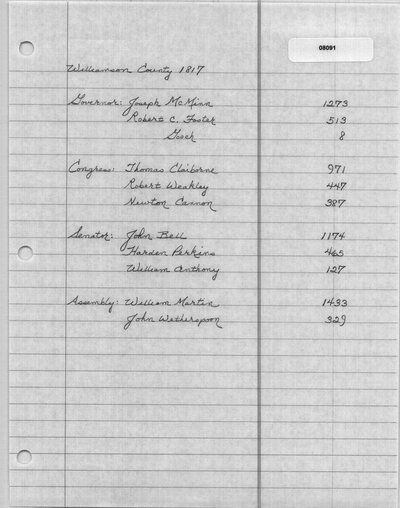 08091
Williamson County 1817
Governor: Joseph McMinn 1273
Robert C. Foster 513
Gooch 8
Congress: Thomas Claiborne 971
Robert Weakley 447
Newton Cannon 387
Senator: John Bell 1174
Harden Perkins 465
William Anthony 127
Assembly: William Martin 1433
John Witherspoon 329